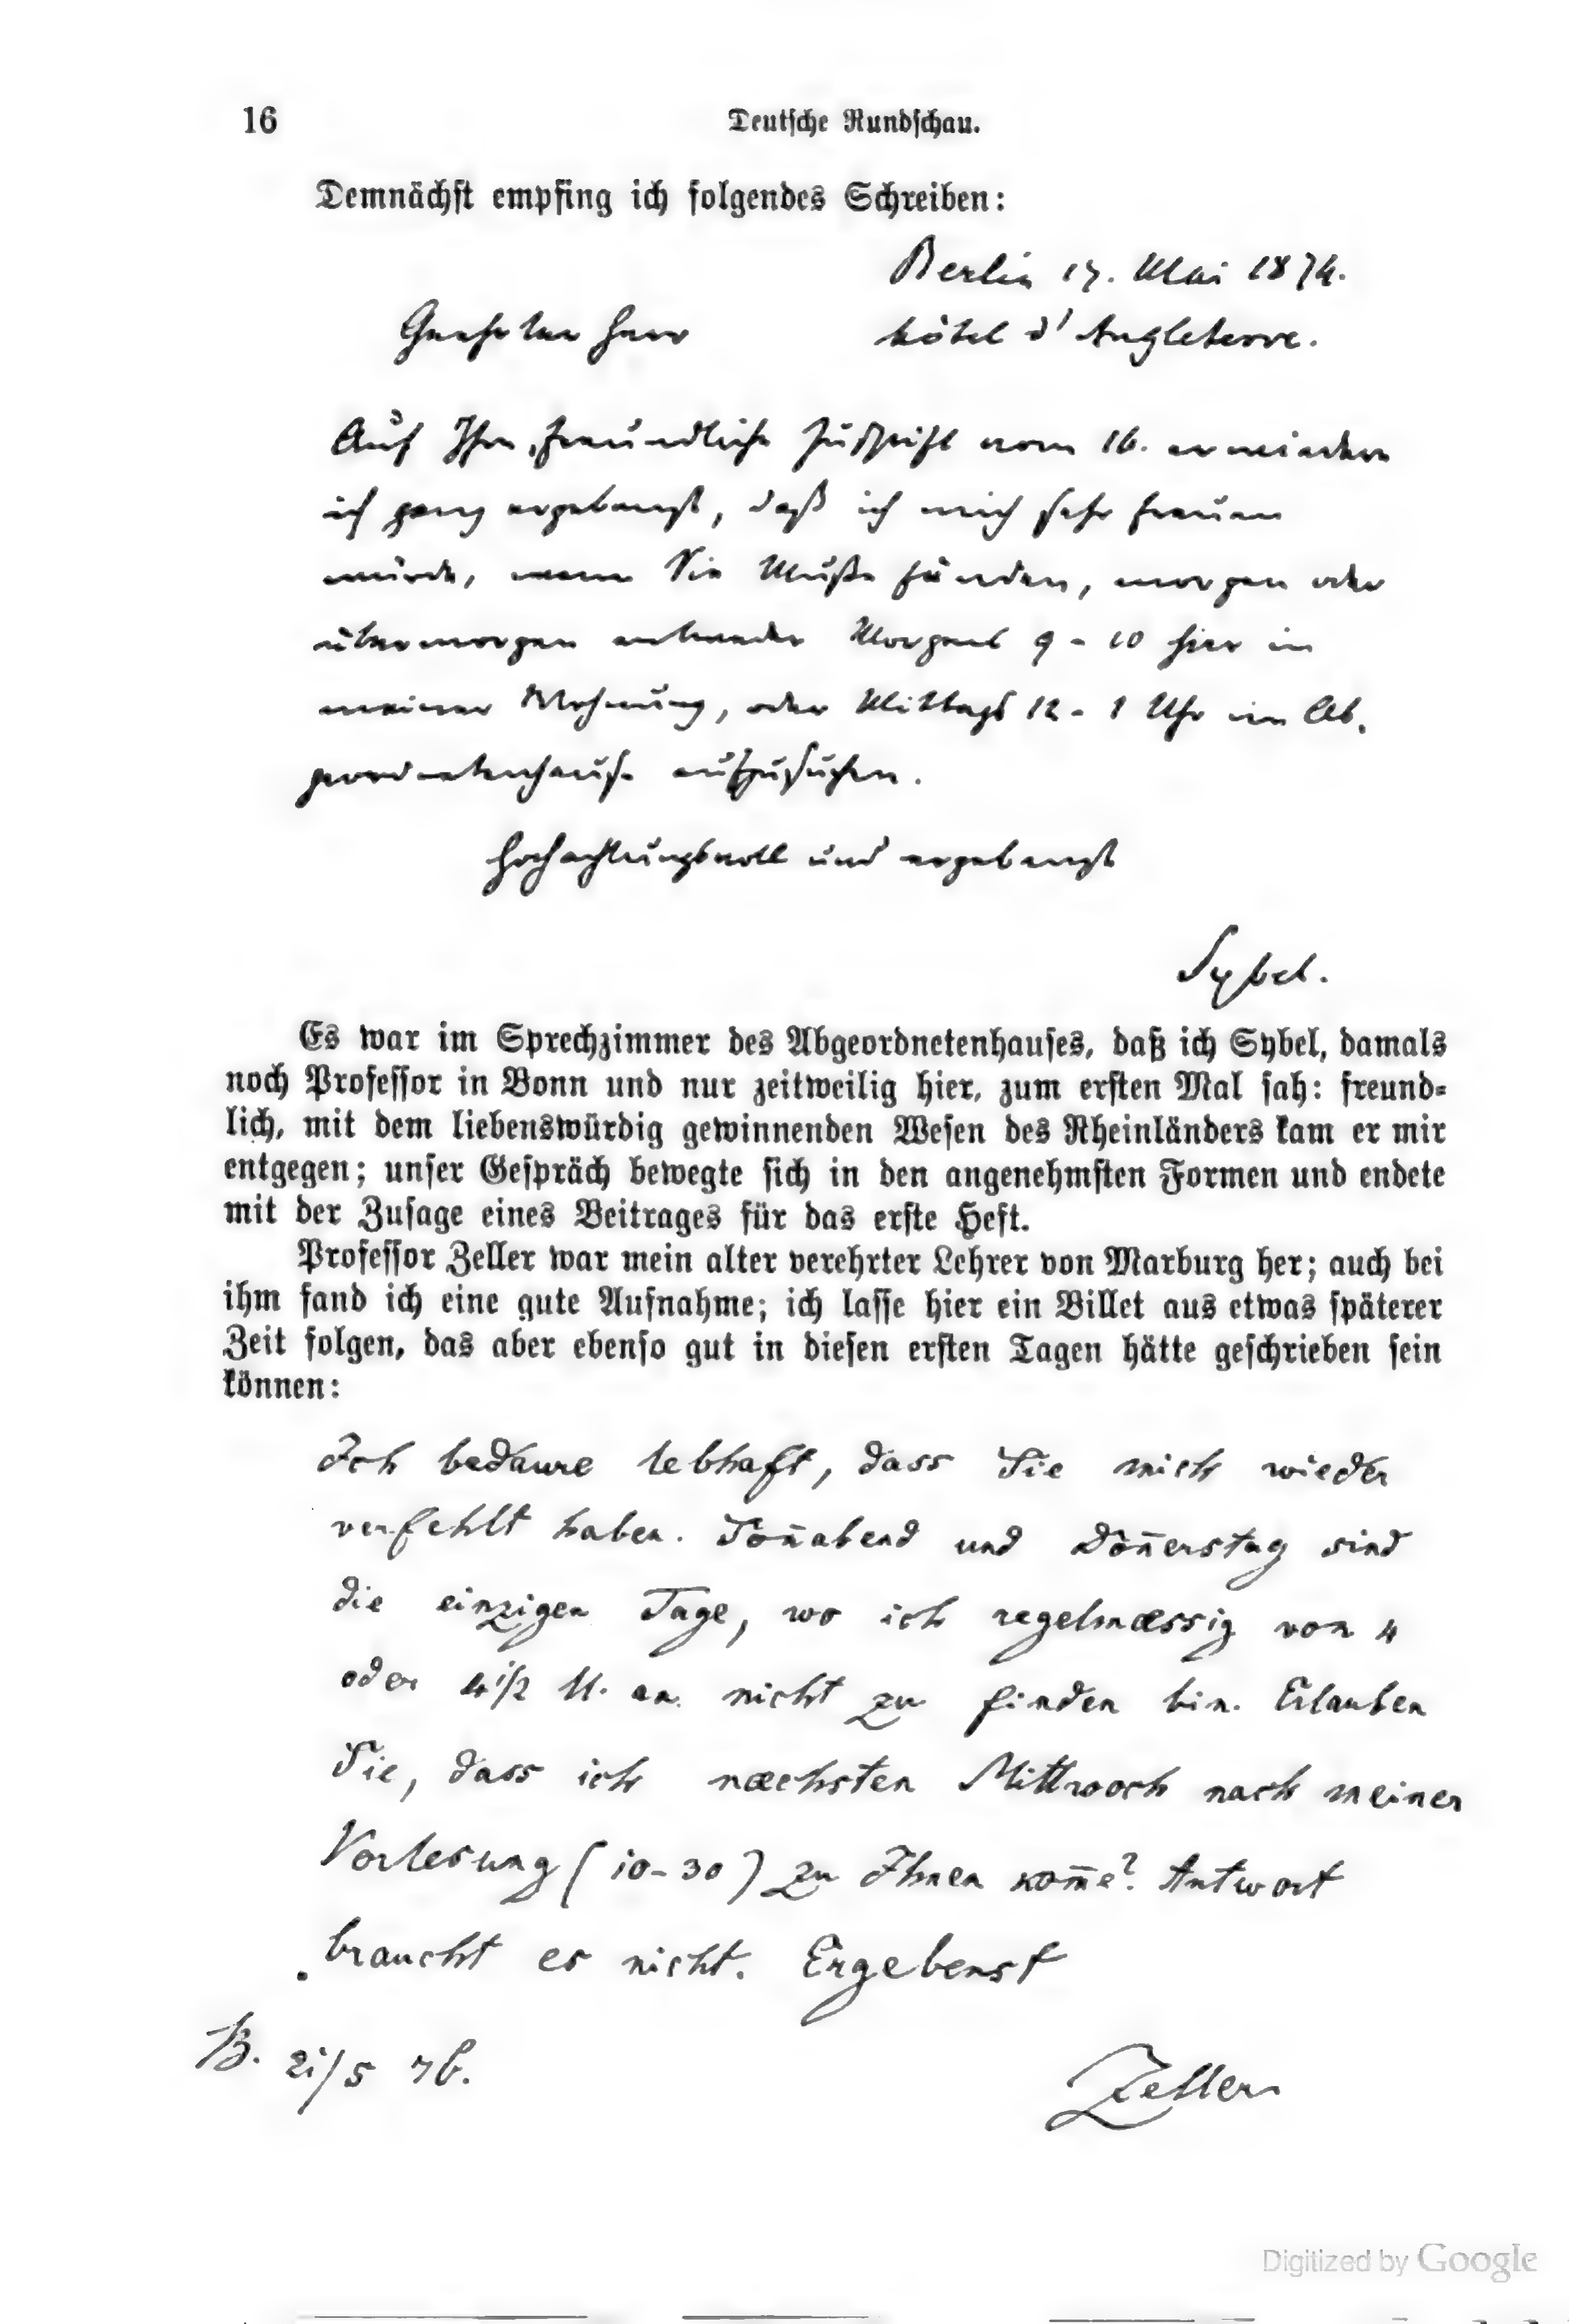 16
Deutsche Rundschau.
Demnächst empfing ich folgendes Schreiben:
Berlin 17. Mai 1874.
Geehrter Herr
Hôtel d'Angleterre.
Auf Ihre freundliche Zuschrift vom 16. erwiedere
ich ganz ergebenst, daß ich mich sehr freuen
würde, wenn Sie Muße fänden, morgen oder
übermorgen entweder Morgens 9 - 10 hier in
meiner Wohnung, oder Mittags 12 - 1 Uhr im Ab.
geordnetenhause aufzusuchen.
Hochachtungsvoll und ergebenst
Sybel.
Es war im Sprechzimmer des Abgeordnetenhauses, daß ich Sybel, damals
noch Professor in Bonn und nur zeitweilig hier, zum ersten Mal sah: freund-
lich, mit dem liebenswürdig gewinnenden Wesen des Rheinländers kam er mir
entgegen; unser Gespräch bewegte sich in den angenehmsten Formen und endete
mit der Zusage eines Beitrages für das erste Heft.
Professor Zeller war mein alter verehrter Lehrer von Marburg her; auch bei
ihm fand ich eine gute Aufnahme; ich lasse hier ein Billet aus etwas späterer
Zeit folgen, das aber ebenso gut in diesen ersten Tagen hätte geschrieben sein
können:
Ich bedaure lebhaft, dass Sie mich wieder
verfehlt haben. Son̄abend und Don̄erstag sind
die einzigen Tage, wo ich regelmæssig von 4
oder 4 1/2 U. an nicht zu finden bin. Erlauben
Sie, dass ich næchsten Mittwoch nach meiner
Vorlesung (10-30) zu Ihnen kom̄e? Antwort
braucht es nicht. Ergebenst
B. 21/5 76.
Zeller
Digitized by Google